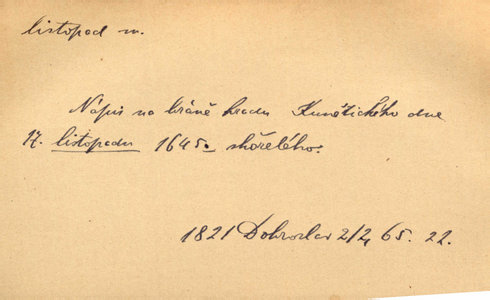 listopad m.
Nápis na bráně hradu Kunětického dne
17. listopadu 1645. shořelého.
1821 Dobroslav 2/2, 65. 22.